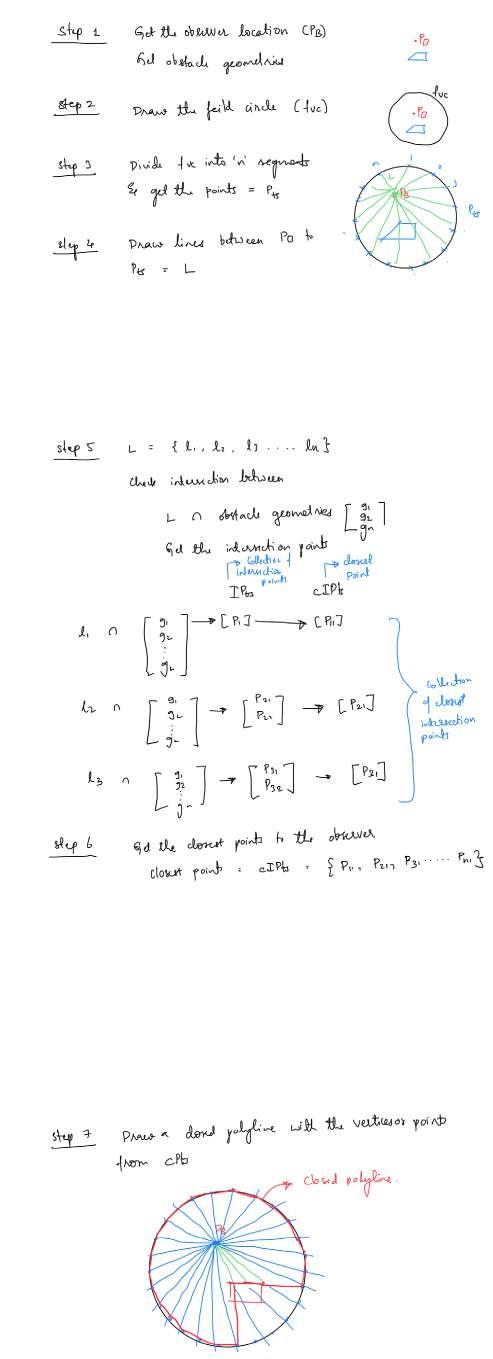 Step 1 Get the observer location (Po)
Get obstacle geometries
Po
Step 2 Draw the feild circle (fvc)
fvc
Po
Step 3 Divide fvc into 'n' segments
& get the points = Pts
n 1 2 3
L
Po
Pts
Step 4 Draw lines between Po to
Pts = L
Step 5 L = { l1, l2, l3 .... ln }
Check intersection between
L ∩ obstacle geometries [ g1 g2 gn ]
Get the intersection points
Collection of intersection points
closest point
IPts cIPts
l1 ∩ [ g1 g2 ⋮ gn ] → [ P1 ] → [ P11 ]
l2 ∩ [ g1 g2 ⋮ gn ] → [ P21 P22 ] → [ P21 ]
l3 ∩ [ g1 g2 ⋮ gn ] → [ P31 P32 ] → [ P31 ]
collection
of closest
intersection
points
Step 6 Get the closest points to the observer
closest points = cIPts = { P11, P21, P31 ..... Pn1 }
Step 7 Draw a closed polyline with the vertices or points
from cPts
Closed polyline.
Po